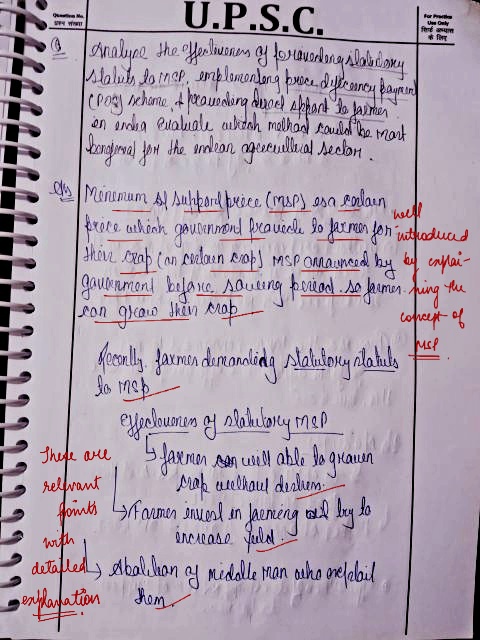 Question No.
प्रश्न संख्या
U.P.S.C.
For Practice
Use Only
सिर्फ अभ्यास
के लिए
Q
Analyse the effectiveness of providing statutory
status to MSP, implementing price deficiency payment
(PDP) scheme, & providing direct support to farmer
in india Evaluate which method could be most
benificial for the indian agricultural sector.
Ans
Minimum of support price (MSP) is a certain
price which government provide to farmer for
their crop (on certain crop) MSP announced by
government before sowing period so farmer
can grow their crop
well
introduced
by explai-
ning the
concept of
MSP
Recently farmer demanding statutory status
to MSP
Effectiveness of statutory MSP
farmer well able to grown
crop without distress.
Farmer invest in farming and try to
increase yield.
Abolition of middle man who exploit
them
There are
relevant
points
with
detailed
explanation